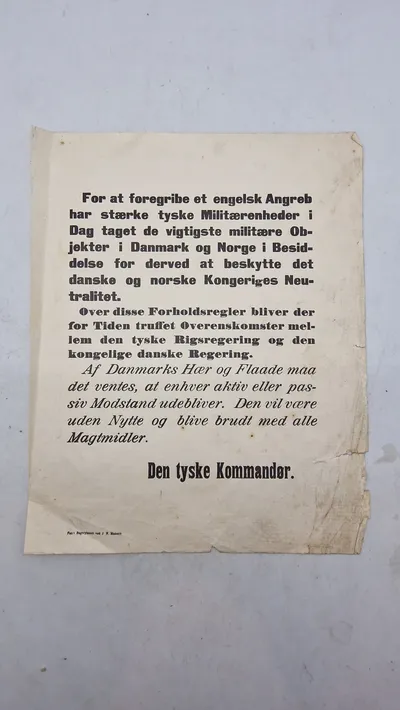 For at foregribe et engelsk Angreb
har stærke tyske Militærenheder i
Dag taget de vigtigste militære Ob-
jekter i Danmark og Norge i Besid-
delse for derved at beskytte det
danske og norske Kongeriges Neu-
tralitet.
Over disse Forholdsregler bliver der
for Tiden truffet Overenskomster mel-
lem den tyske Rigsregering og den
kongelige danske Regering.
Af Danmarks Hær og Flaade maa
det ventes, at enhver aktiv eller pas-
siv Modstand udebliver. Den vil være
uden Nytte og blive brudt med alle
Magtmidler.
Den tyske Kommandør.